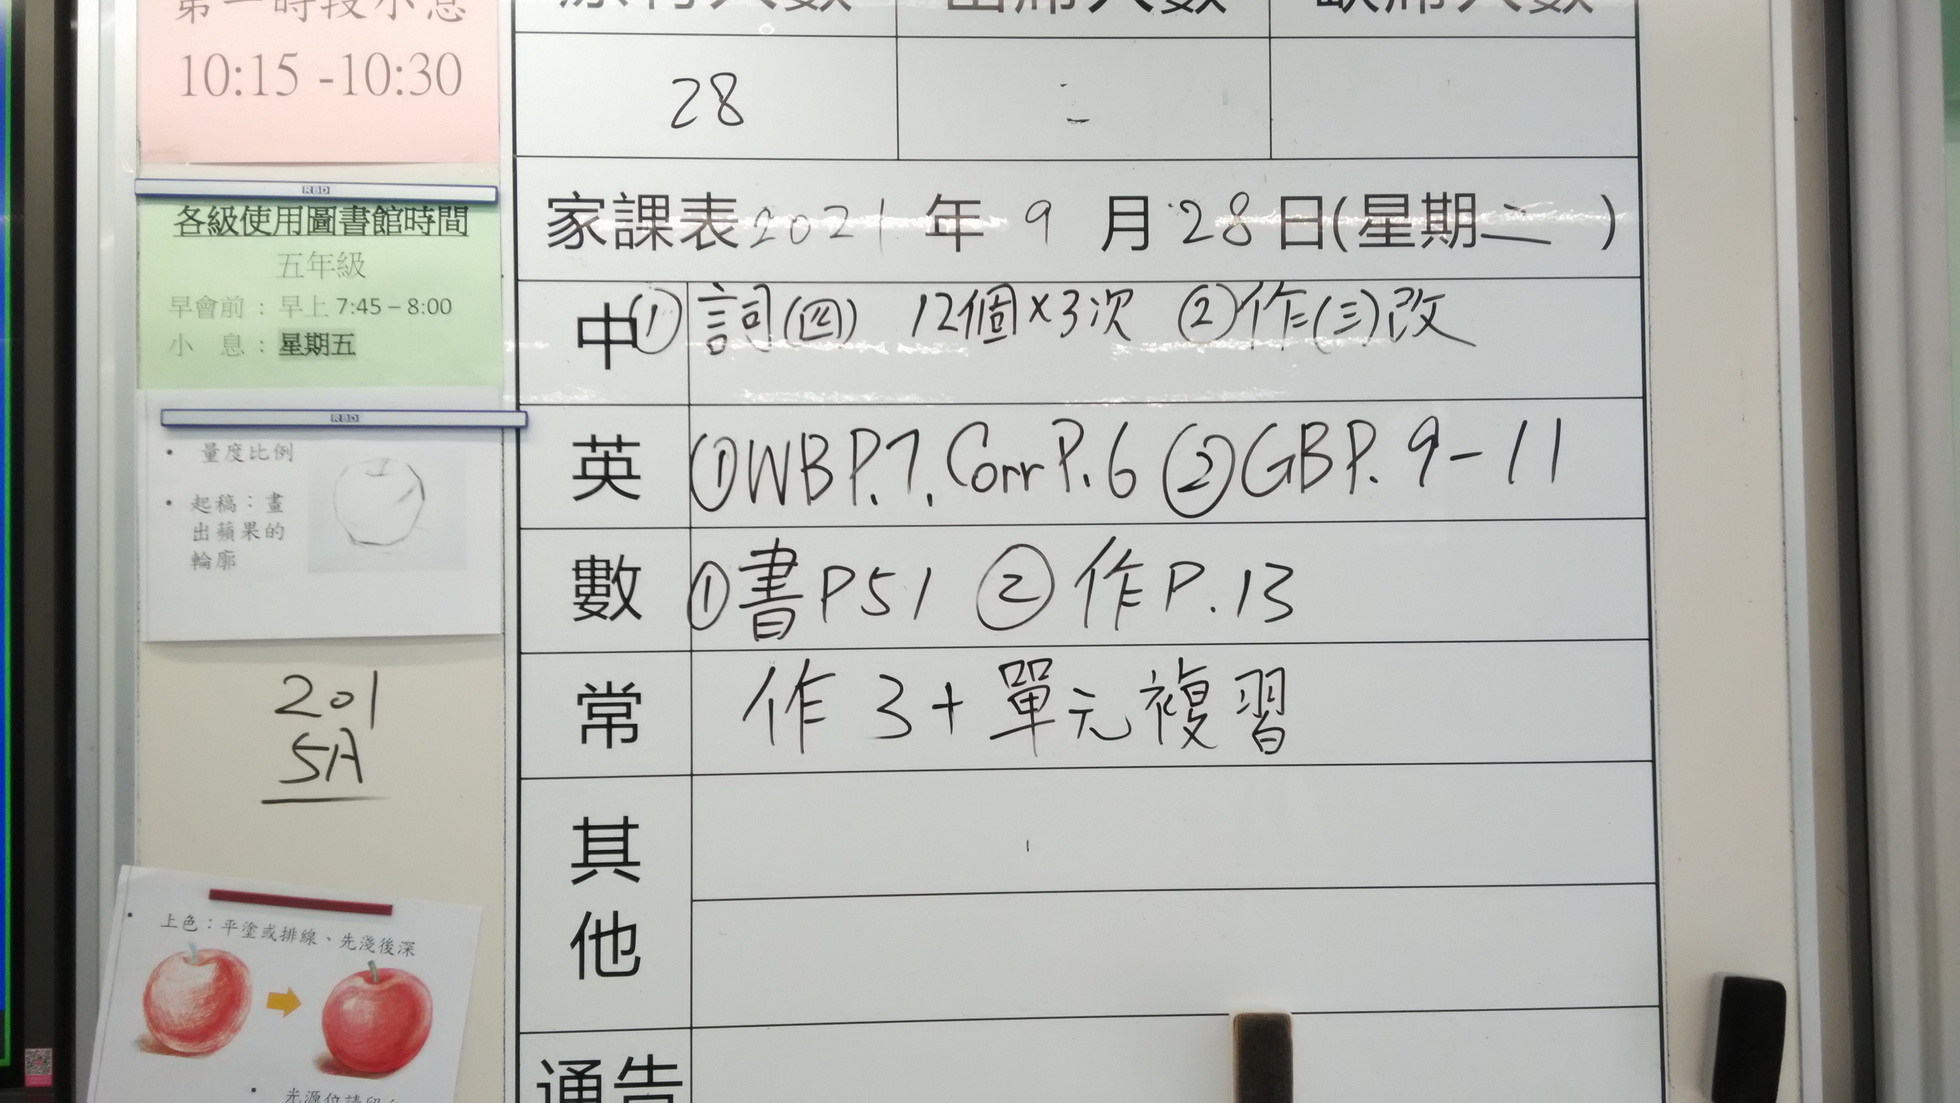 第一時段小息
10:15 -10:30
RBD
各級使用圖書館時間
五年級
早會前：早上 7:45 – 8:00
小 息：星期五
RBD
• 量度比例
• 起稿：畫
出蘋果的
輪廓
201
5A
• 上色：平塗或排線、先淺後深
原有人數 出席人數 缺席人數
28
家課表 2021 年 9 月 28 日(星期二)
中 ① 詞(四) 12個×3次 ②作(三)改
英 ①WB P.7. Corr P.6 ②GB P. 9-11
數 ①書P51 ② 作P.13
常 作 3 + 單元複習
其
他
通告